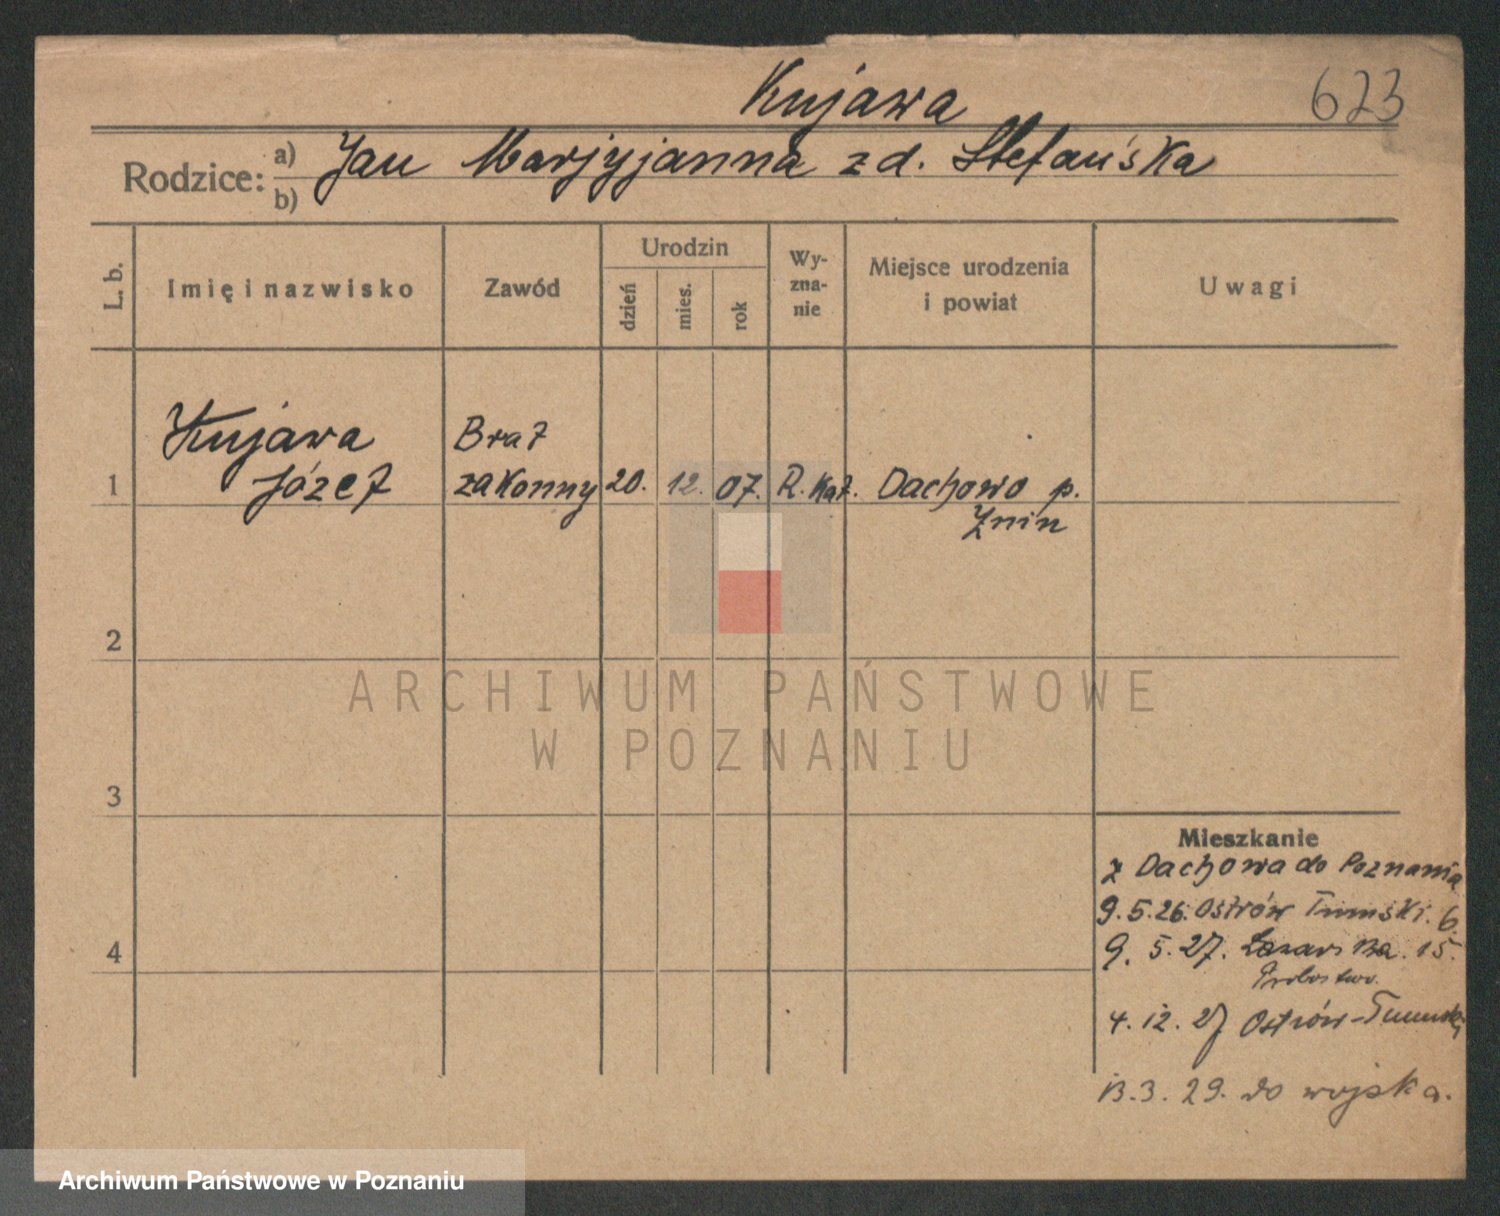 Kujawa
623
Rodzice: a) Jan Marjyjanna z d. Stefańska
b)
L. b.
Imię i nazwisko
Zawód
Urodzin
dzień
mies.
rok
Wy-
zna-
nie
Miejsce urodzenia
i powiat
Uwagi
Kujawa Brat
1 Józef zakonny 20. 12. 07. R. Kat. Dachowo p.
Żnin
2
ARCHIWUM PAŃSTWOWE
W POZNANIU
3
Mieszkanie
z Dachowa do Poznania
9.5.26. Ostrów Tumski. 6.
4
9. 5. 27. 15.
Probostwo.
4. 12. 27 Ostrów-Tumski
13.3.29. do wojska.
Archiwum Państwowe w Poznaniu